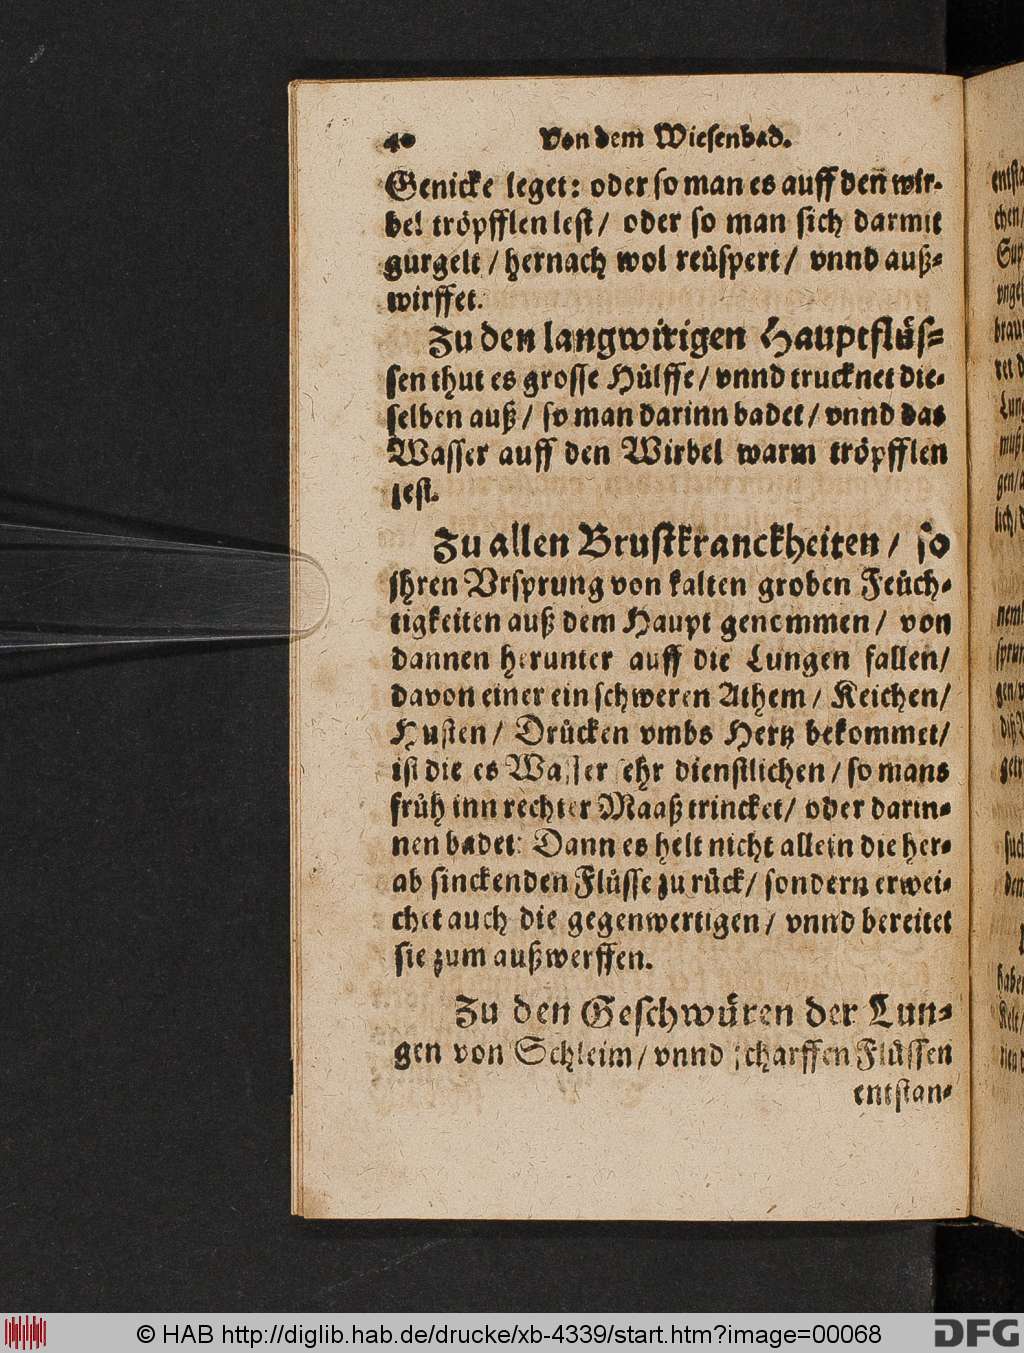 40 Von dem Wiesenbad.
Genicke leget: oder so man es auff den wir-
bel tröpfflen lest / oder so man sich darmit
gurgelt / hernach wol reüspert / vnnd auß-
wirffet.
Zu den langwirigen Hauptflüs-
sen thut es grosse Hülffe / vnnd trucknet die-
selben auß / so man darinn badet / vnnd das
Wasser auff den Wirbel warm tröpfflen
lest.
Zu allen Brustkranckheiten / so
jhren Vrsprung von kalten groben Feüch-
tigkeiten auß dem Haupt genommen / von
dannen herunter auff die Lungen fallen /
davon einer ein schweren Athem / Keichen /
Husten / Drücken vmbs Hertz bekommet /
ist die es Wasser sehr dienstlichen / so mans
früh inn rechter Maaß trincket / oder darin-
nen badet: Dann es helt nicht allein die her-
ab sinckenden Flüsse zu rück / sondern erwei-
chet auch die gegenwertigen / vnnd bereitet
sie zum außwerffen.
Zu den Geschwüren der Lun-
gen von Schleim / vnnd scharffen Flüssen
entstan-
© HAB http://diglib.hab.de/drucke/xb-4339/start.htm?image=00068
DFG